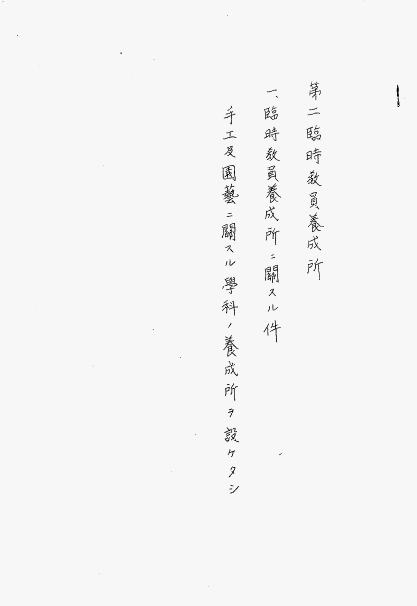 第二臨時教員養成所
一、臨時教員養成所ニ關スル件
手工及園藝ニ關スル學科ノ養成所ヲ設ケタシ